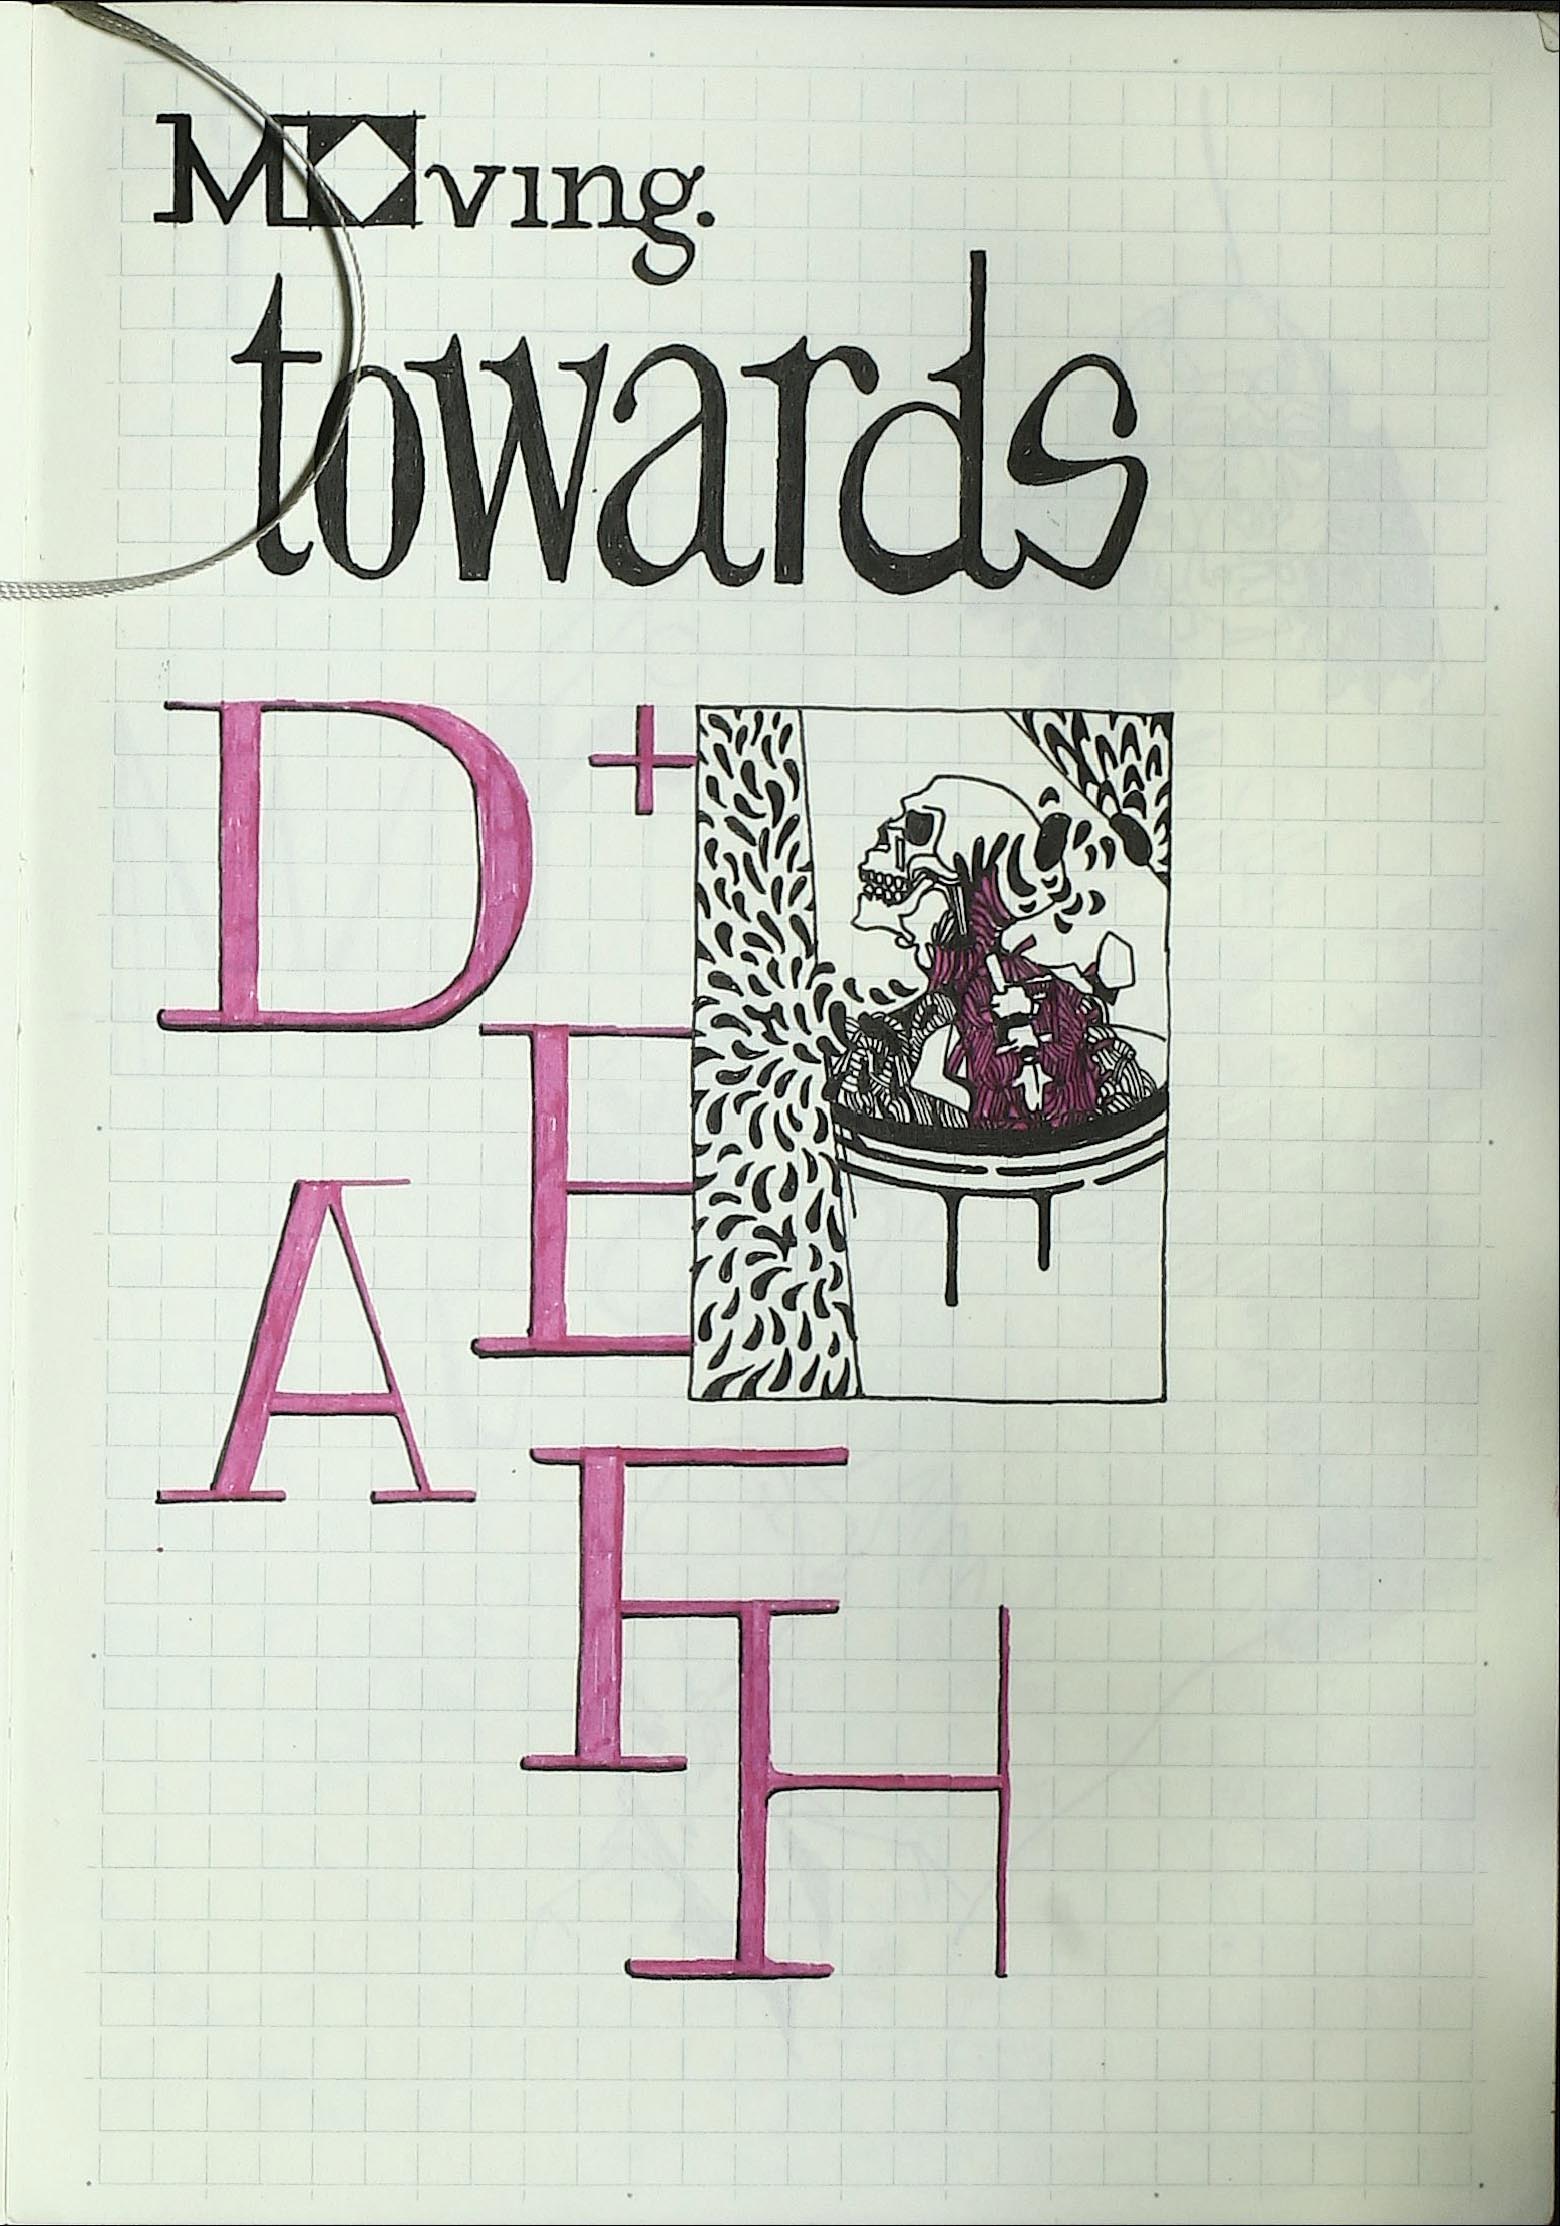 Moving.
towards
DEATH